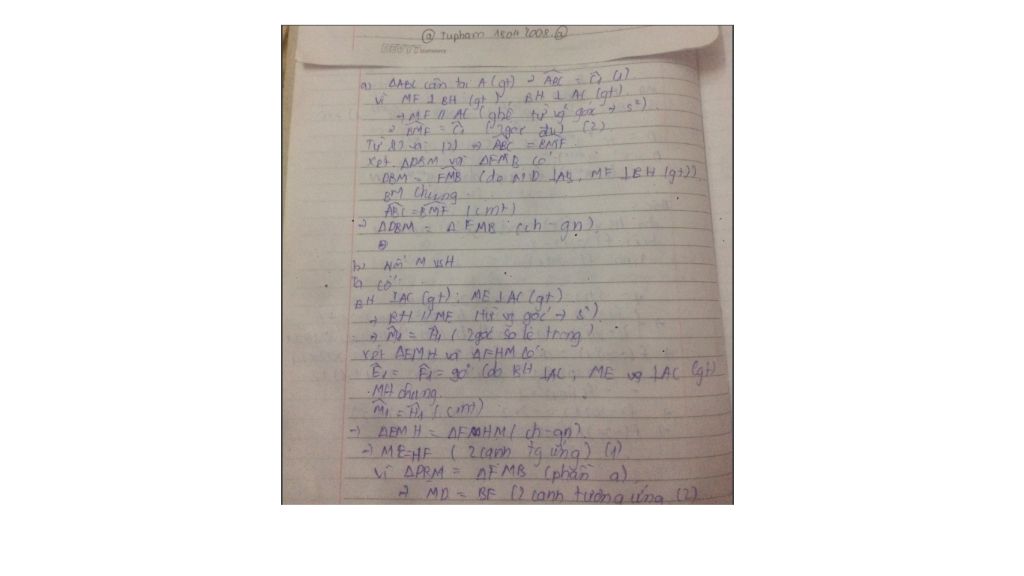 @ tupham 1804 2008.@
a) ΔABC cân tại A (gt) → ABC = C1 (1)
Vì MF ⊥ BH (gt), BH ⊥ AC (gt)
→ MF // AC (ghệ từ vg góc → s²)
→ BMF = C1 (2 góc đv) (2)
Từ (1) và (2) → ABC = BMF
Xét ΔDBM và ΔFMB có:
DBM = FMB (do MD ⊥ AB, ME ⊥ BH (gt))
BM chung
ABC = BMF (cmt)
→ ΔDBM = ΔFMB (ch - gn)
b) Nối M và H
Ta có:
BH ⊥ AC (gt); ME ⊥ AC (gt)
→ BH // ME (từ vg góc → s²)
→ M1 = H1 (2 góc so le trong)
Xét ΔEMH và ΔFHM có:
E1 = F1 = 90° (do BH ⊥ AC; ME vg ⊥ AC (gt)
MH chung
M1 = H1 (cmt)
→ ΔEMH = ΔFHM (ch - gn)
→ ME = HF (2 cạnh tg ứng) (1)
Vì ΔDBM = ΔFMB (phần a)
→ MD = BF (2 cạnh tương ứng (2)